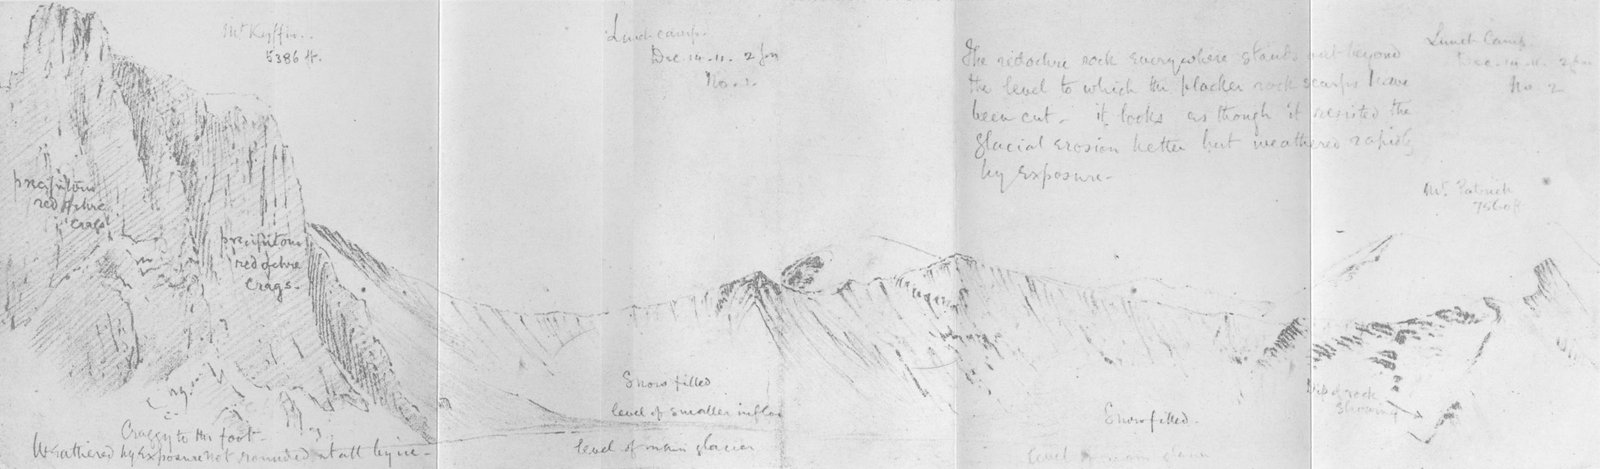 Mt Kyffin..
5386 ft.
Lunch camp.
Dec. 14. 11. 2 pm
No. 1.
The redochre rock everywhere stands out beyond
the level to which the blacker rock scarps have
been cut - it looks as though it resisted the
glacial erosion better but weathered rapidly
by exposure -
Lunch Camp
Dec. 14. 11. 2 pm
No. 2
Mt. Patrick
7560 ft
precipitous
red ochre
crags
precipitous
redochre
Crags -
Snow filled
level of smaller inflow
level of main glacier
Craggy to the foot -
Weathered by exposure not rounded at all by ice -
Snowfilled -
level main glacier
of rock
showing